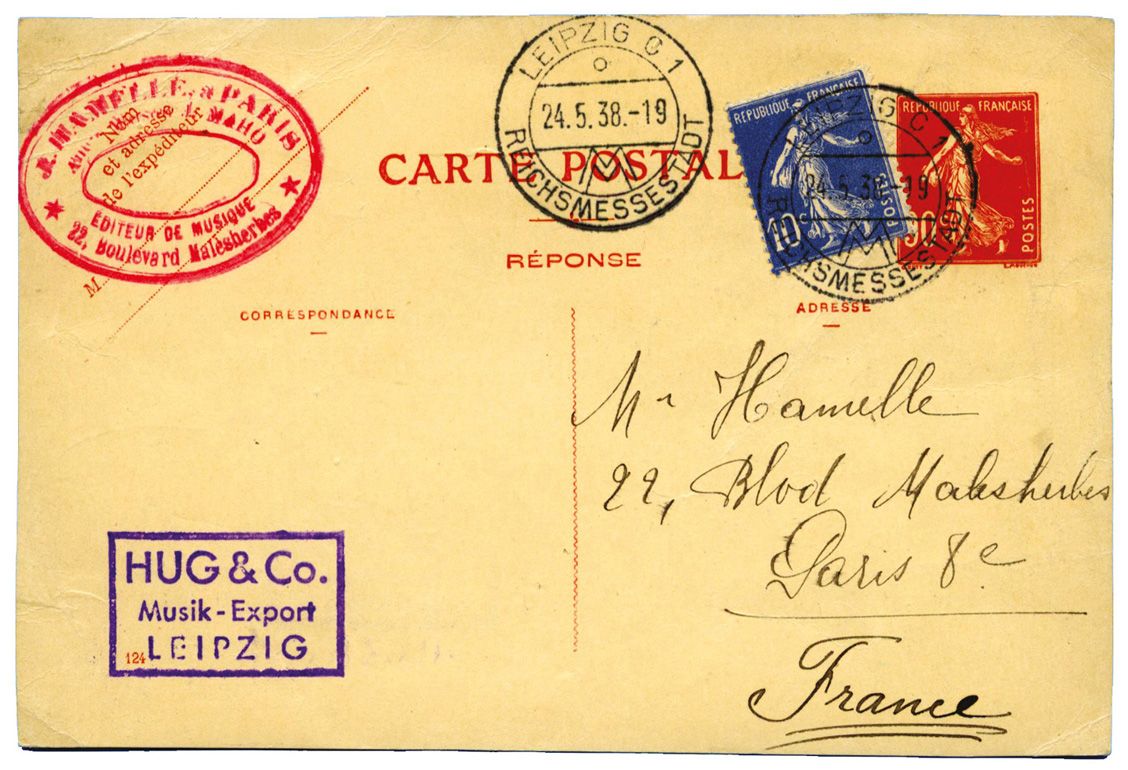 J. HAMELLE, à PARIS
MAHO
EDITEUR DE MUSIQUE
22, Boulevard Malesherbes
Nom
et adresse
de l'expéditeur
M
LEIPZIG C 1
24.5.38.-19
REICHSMESSESTADT
CARTE POSTAL
RÉPONSE
REPUBLIQUE FRANÇAISE
10c
POSTES
LEIPZIG C 1
24.5.38.-19
REICHSMESSESTADT
REPUBLIQUE FRANÇAISE
90
POSTES
CORRESPONDANCE
ADRESSE
Mr Hamelle
22, Blvd Malesherbes
Paris 8e
France
HUG & Co.
Musik-Export
LEIPZIG
124